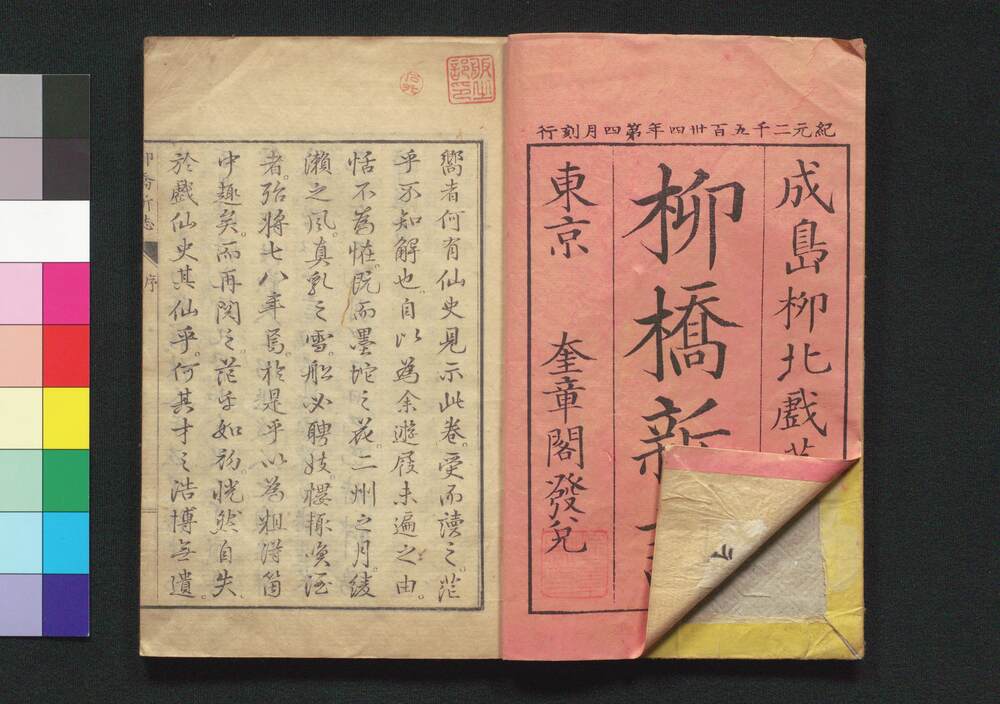 紀元二千五百卅四年第四月刻行
成島柳北戲
柳橋新
東京 奎章閣發兌
嚮者何有仙史見示此卷。受而讀之。茫
乎不知解也。自以為余遊屐未遍之由。
恬不為恠。既而墨坨之花。二州之月。綾
瀨之風。真乳之雪。船必聘妓。樓輙喚酒
者。殆將七八年焉。於是乎以為粗得箇
中趣矣。而再閱之。茫乎如初。恍然自失。
於戲仙史其仙乎。何其才之浩博無遺。
柳橋新志 序